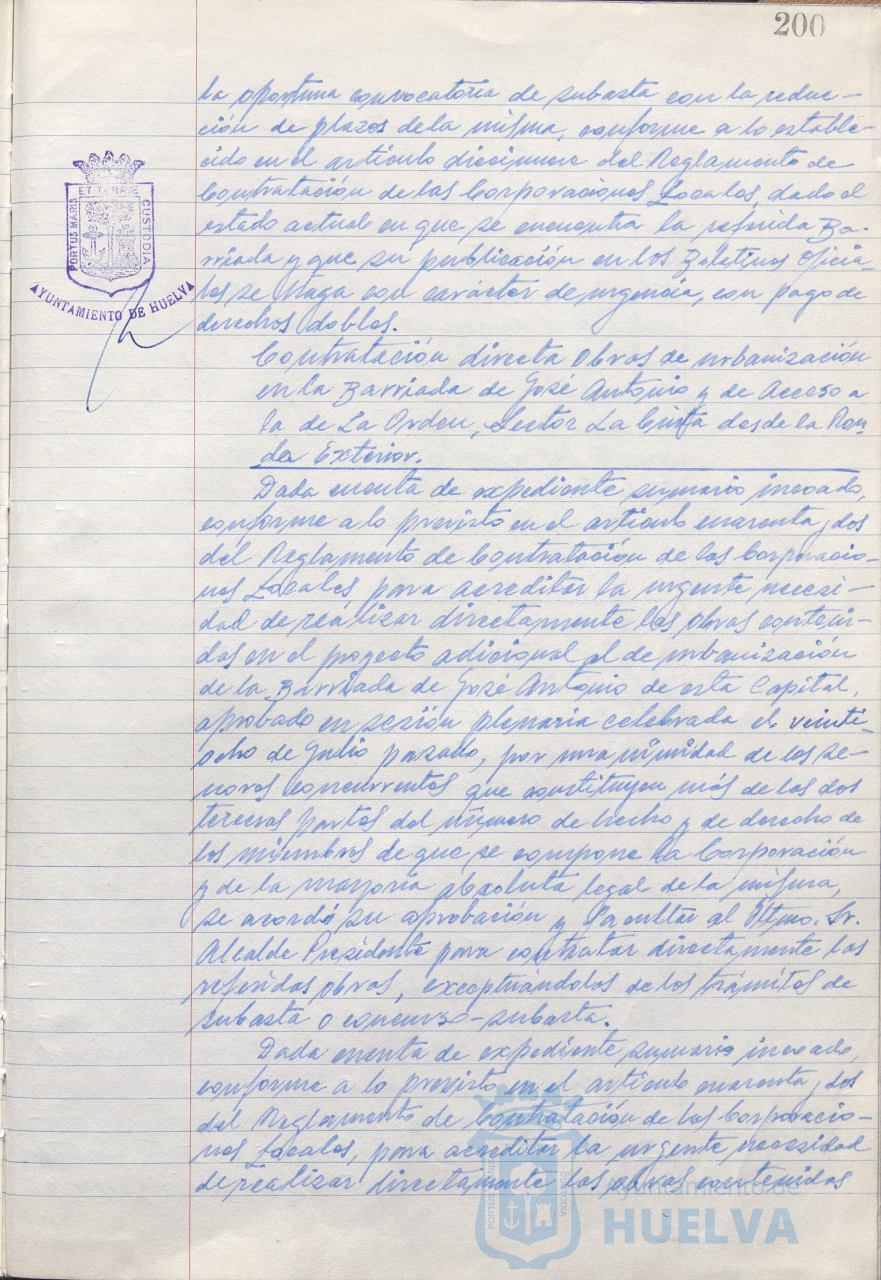 200
la oportuna convocatoria de subasta con la reduc-
ción de plazos de la misma, conforme a lo estable-
cido en el artículo diecinueve del Reglamento de
Contratación de las Corporaciones Locales, dado el
estado actual en que se encuentra la referida Ba-
rriada y que su publicación en los Boletines Oficia-
les se haga con carácter de urgencia, con pago de
derechos dobles.
PORTUS MARIS ET TERRÆ CUSTODIA
AYUNTAMIENTO DE HUELVA
Contratación directa Obras de urbanización
en la Barriada de José Antonio y de Acceso a
la de La Orden, Sector La Cinta desde la Ron-
da Exterior.
Dada cuenta de expediente sumario incoado,
conforme a lo previsto en el artículo cuarenta y dos
del Reglamento de Contratación de las Corporacio-
nes Locales para acreditar la urgente necesi-
dad de realizar directamente las obras conteni-
das en el proyecto adicional al de urbanización
de la Barriada de José Antonio de esta Capital,
aprobado en sesión plenaria celebrada el veinti-
ocho de Julio pasado, por unanimidad de los se-
ñores concurrentes que constituyen más de las dos
terceras partes del número de hecho y de derecho de
los miembros de que se compone la Corporación
y de la mayoría absoluta legal de la misma,
se acordó su aprobación y facultar al Iltmo. Sr.
Alcalde Presidente para contratar directamente las
referidas obras, exceptuándolas de los trámites de
subasta o concurso-subasta.
Dada cuenta de expediente sumario incoado,
conforme a lo previsto en el artículo cuarenta y dos
del Reglamento de Contratación de las Corporacio-
nes Locales, para acreditar la urgente necesidad
de realizar directamente las obras contenidas
Ayuntamiento de
HUELVA